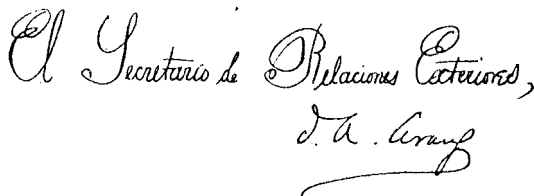 El Secretario de Relaciones Exteriores,
J. A. Arang